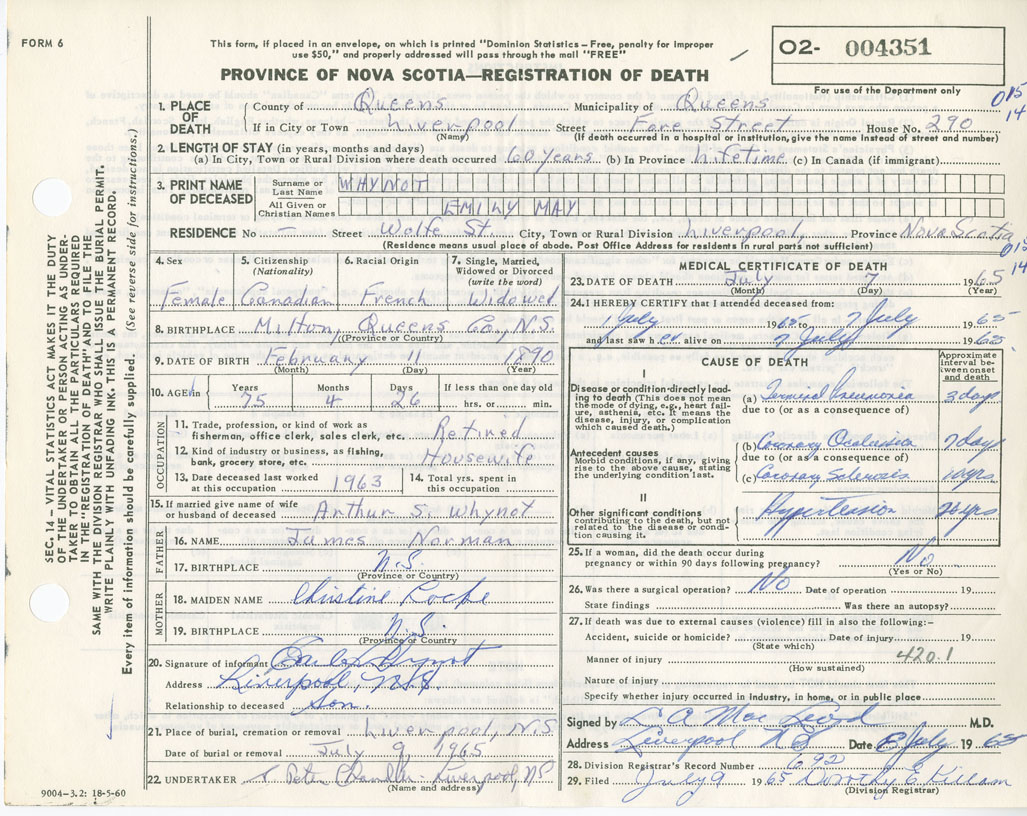 FORM 6
This form, if placed in an envelope, on which is printed "Dominion Statistics – Free, penalty for improper
use $50," and properly addressed will pass through the mail "FREE"
PROVINCE OF NOVA SCOTIA—REGISTRATION OF DEATH
O2- 004351
For use of the Department only
015
14
1. PLACE OF DEATH
County of Queens Municipality of Queens
If in City or Town Liverpool Street Fore Street House No. 290
(Name) (If death occurred in a hospital or institution, give the name instead of street and number)
2. LENGTH OF STAY (in years, months and days)
(a) In City, Town or Rural Division where death occurred 60 years (b) In Province lifetime (c) In Canada (if immigrant)
3. PRINT NAME OF DECEASED
Surname or Last Name WHYNOT
All Given or Christian Names EMILY MAY
RESIDENCE No — Street Wolfe St. City, Town or Rural Division Liverpool, Province Nova Scotia
(Residence means usual place of abode. Post Office Address for residents in rural parts not sufficient)
015
14
4. Sex
Female
5. Citizenship
(Nationality)
Canadian
6. Racial Origin
French
7. Single, Married,
Widowed or Divorced
(write the word)
Widowed
8. BIRTHPLACE Milton, Queens Co., N.S.
(Province or Country)
9. DATE OF BIRTH February 11 1890
(Month) (Day) (Year)
10. AGE in Years Months Days If less than one day old
75 4 26 hrs. or min.
OCCUPATION
11. Trade, profession, or kind of work as
fisherman, office clerk, sales clerk, etc. Retired
12. Kind of industry or business, as fishing,
bank, grocery store, etc. Housewife
13. Date deceased last worked
at this occupation 1963
14. Total yrs. spent in
this occupation
15. If married give name of wife
or husband of deceased Arthur S. Whynot
FATHER
16. NAME James Norman
17. BIRTHPLACE N.S.
(Province or Country)
MOTHER
18. MAIDEN NAME Christine
19. BIRTHPLACE N.S.
(Province or Country
20. Signature of informant Whynot
Address Liverpool, N.S.
Relationship to deceased son.
21. Place of burial, cremation or removal Liverpool, N.S.
Date of burial or removal July 9 1965
22. UNDERTAKER T. Peter Chandler - Liverpool, N.S.
(Name and address)
MEDICAL CERTIFICATE OF DEATH
23. DATE OF DEATH July 7 1965
(Month) (Day) (Year)
24. I HEREBY CERTIFY that I attended deceased from:
1 July 1965 to 7 July 1965
and last saw her alive on 7 July 1965
CAUSE OF DEATH
Approximate
interval be-
tween onset
and death
I
Disease or condition directly lead-
ing to death (This does not mean
the mode of dying, e.g., heart fail-
ure, asthenia, etc. It means the
disease, injury, or complication
which caused death.)
(a) Terminal Pneumonia 3 days
due to (or as a consequence of)
Antecedent causes
Morbid conditions, if any, giving
rise to the above cause, stating
the underlying condition last.
(b) Coronary Occlusion 7 days
due to (or as a consequence of)
(c) Coronary Sclerosis 10 yrs
II
Other significant conditions
contributing to the death, but not
related to the disease or condi-
tion causing it.
Hypertension yrs
25. If a woman, did the death occur during
pregnancy or within 90 days following pregnancy? No
(Yes or No)
26. Was there a surgical operation? No Date of operation 19
State findings Was there an autopsy?
27. If death was due to external causes (violence) fill in also the following:–
Accident, suicide or homicide? Date of injury 19
(State which)
Manner of injury 420.1
(How sustained)
Nature of injury
Specify whether injury occurred in industry, in home, or in public place
Signed by C A Mac Leod M.D.
Address Liverpool NS Date 8 July 1965
28. Division Registrar's Record Number 692
29. Filed July 9 1965 Dorothy E. Killam
(Division Registrar)
SEC. 14 – VITAL STATISTICS ACT MAKES IT THE DUTY
OF THE UNDERTAKER OR PERSON ACTING AS UNDER-
TAKER TO OBTAIN ALL THE PARTICULARS REQUIRED
IN THE "REGISTRATION OF DEATH" AND TO FILE THE
SAME WITH THE DIVISION REGISTRAR WHO SHALL ISSUE THE BURIAL PERMIT.
WRITE PLAINLY WITH UNFADING INK. THIS IS A PERMANENT RECORD.
Every item of information should be carefully supplied. (See reverse side for instructions.)
9004-3.2: 18-5-60